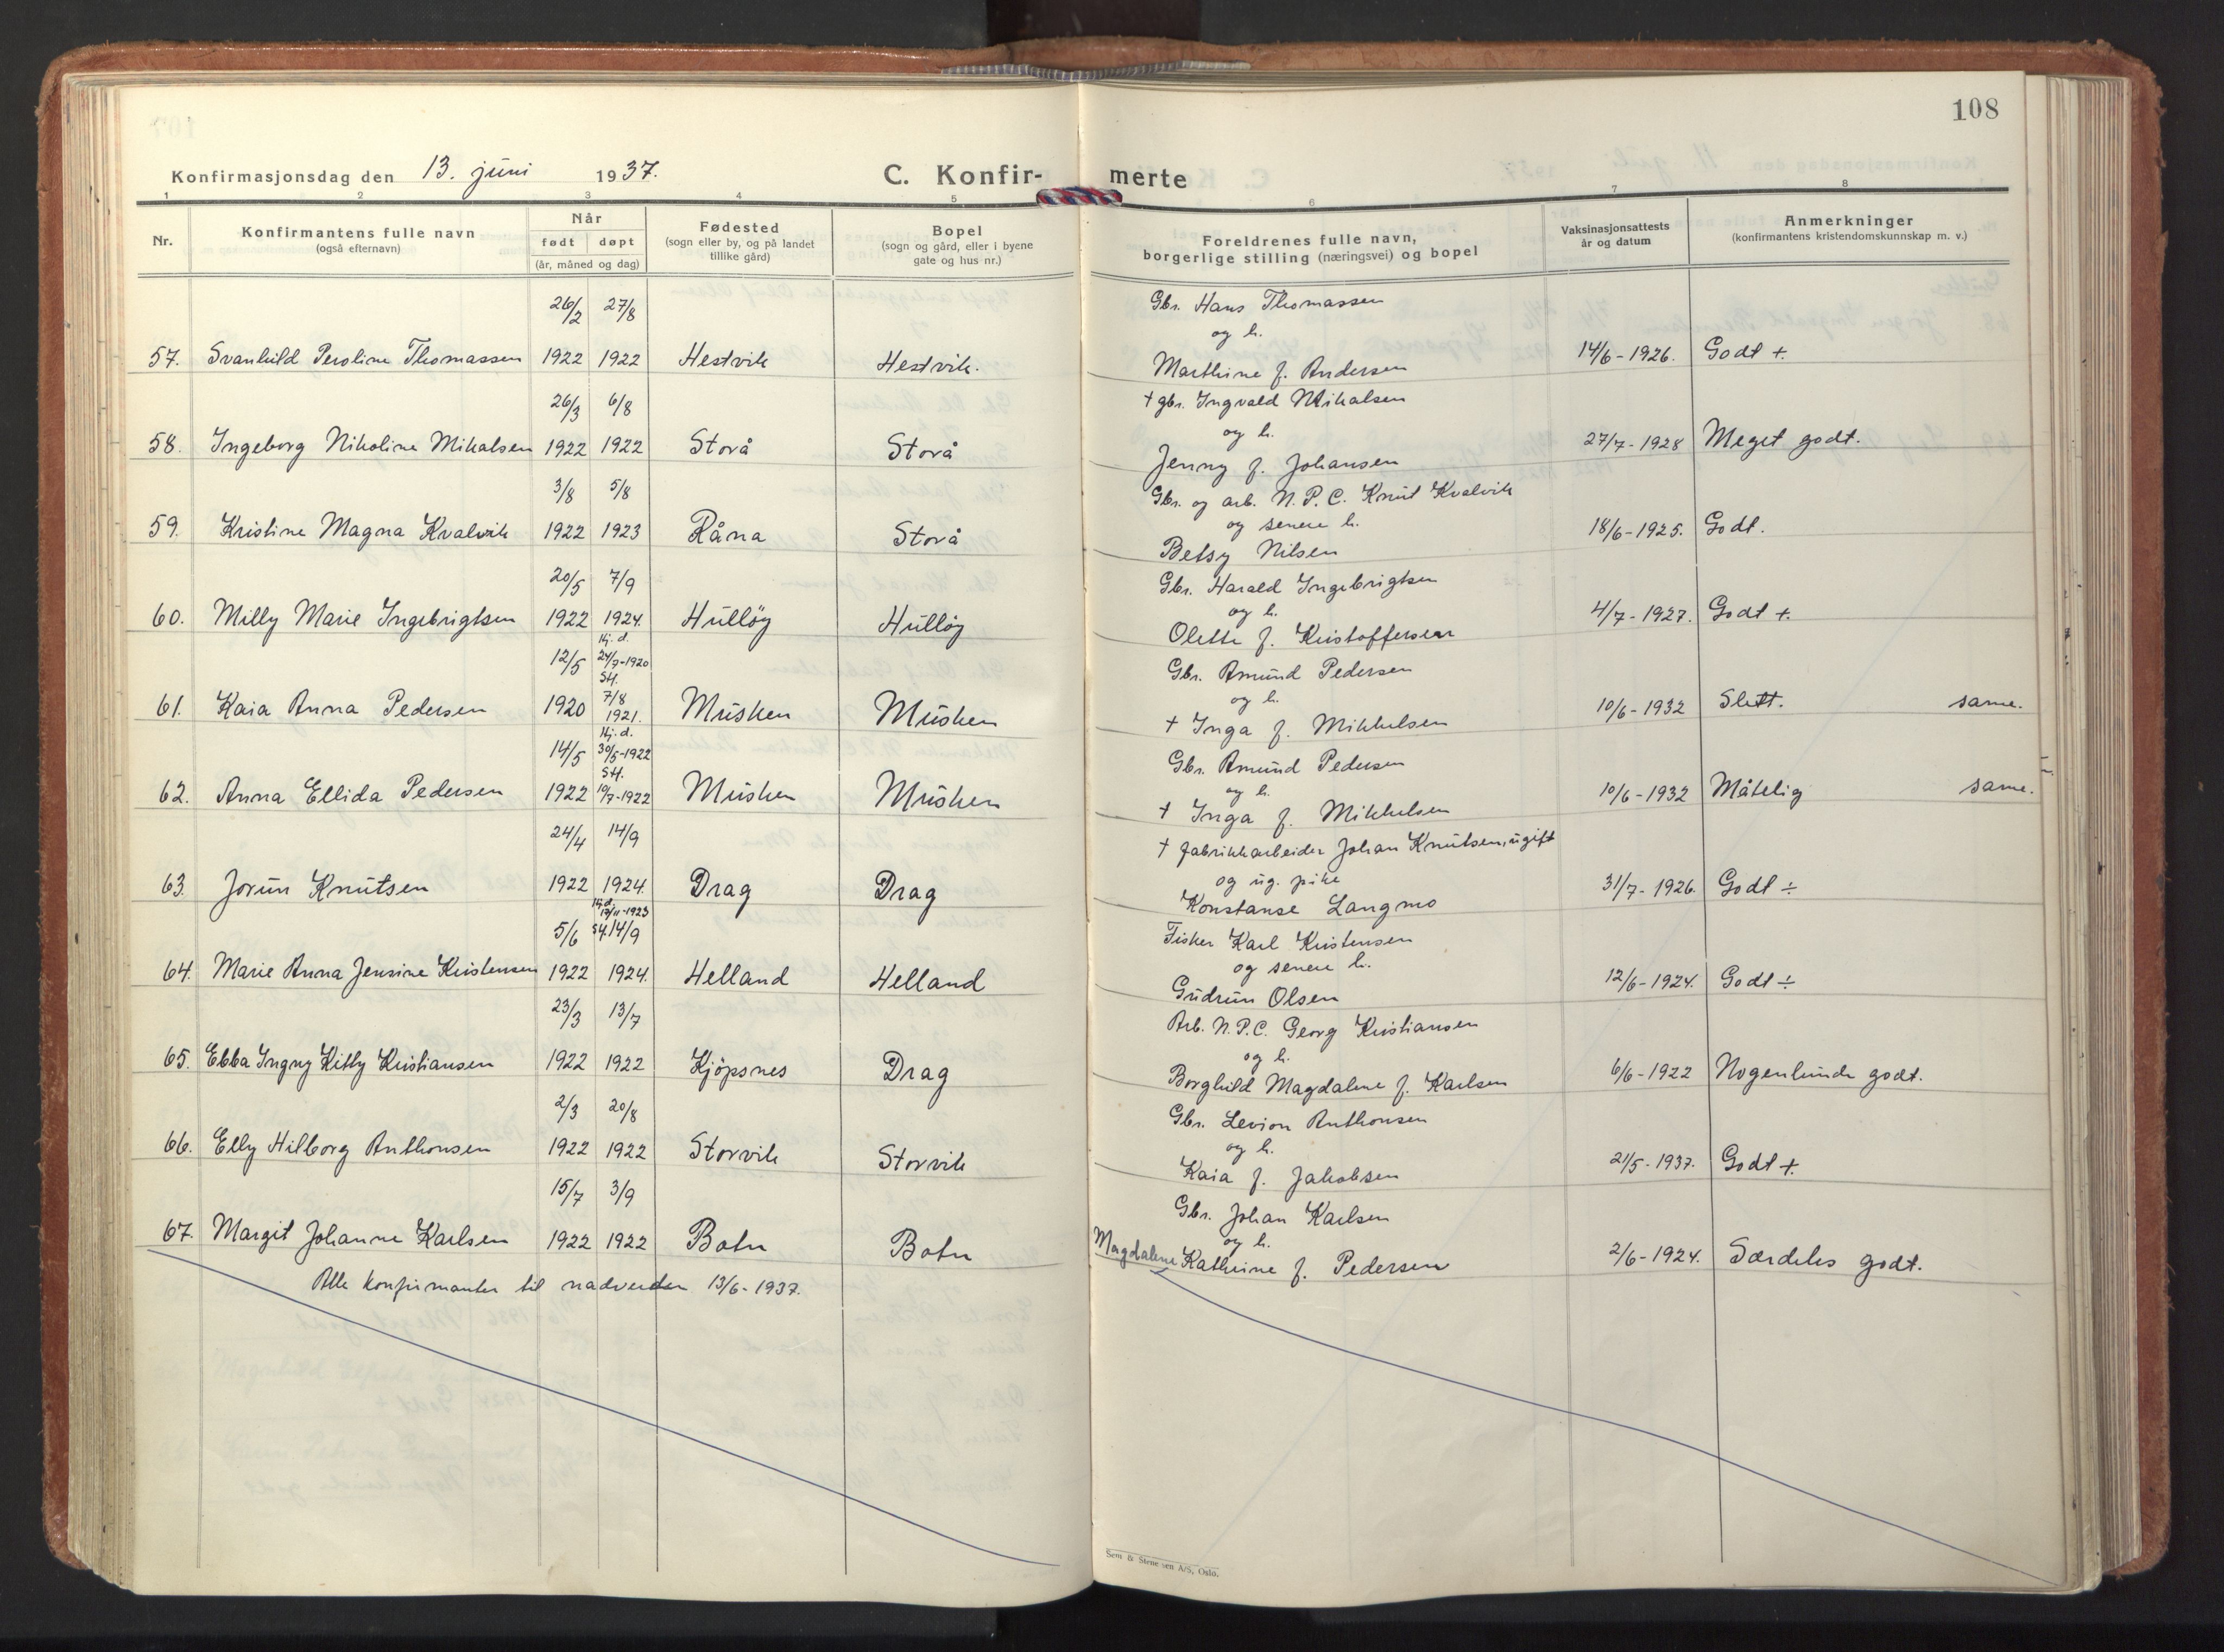 108
Konfirmasjonsdag den 13. juni 1937.
C. Konfir- merte
1 2 3 4 5 6 7 8
Nr.
Konfirmantens fulle navn
(også efternavn)
Når
født døpt
(år, måned og dag)
Fødested
(sogn eller by, og på landet
tillike gård)
Bopel
(sogn og gård, eller i byene
gate og hus nr.)
Foreldrenes fulle navn,
borgerlige stilling (næringsvei) og bopel
Vaksinasjonsattests
år og datum
Anmerkninger
(konfirmantens kristendomskunnskap m. v.)
26/2 27/8 Gbr. Hans Thomassen
og h.
57. Svanhild Peroline Thomassen 1922 1922 Hestvik Hestvik. Marthine f. Andersen 14/6-1926. Godt +.
26/3 6/8 † gbr. Ingvald Mikalsen
og h.
58. Ingeborg Nikoline Mikalsen 1922 1922 Storå Storå Jenny f. Johansen 27/7-1928 Meget godt.
3/8 5/8 Gbr. og arb. N.P.C. Knut Kvalvik
og senere h.
59. Kristine Magna Kvalvik 1922 1923 Råna Storå Betsy Nilsen 18/6-1925. Godt.
20/5 7/9 Gbr. Harald Ingebrigtsen
og h.
60. Milly Marie Ingebrigtsen 1922 1924. Hulløy Hulløy Olette f. Kristoffersen 4/7-1927. Godt +.
Hj. d.
12/5 24/7-1920 Gbr. Amund Pedersen
St.
7/8 og h.
61. Kaia Anna Pedersen 1920 1921. Musken Musken † Inga f. Mikkelsen 10/6-1932 Slett. same.
Hj. d.
14/5 30/5-1922 Gbr. Amund Pedersen
St. og h.
62. Anna Ellida Pedersen 1922 19/7-1922 Musken Musken † Inga f. Mikkelsen 10/6-1932 Måtelig same.
24/4 14/9 † fabrikkarbeider Johan Knutsen, ugift
og ug. pike
63. Jorun Knutsen 1922 1924. Drag Drag Konstanse Langmo 31/7-1926. Godt ÷
Hj. d.
5/6 St. 14/9 Fisker Karl Kristensen
og senere h.
64. Marie Anna Jensine Kristensen 1922 1924. Helland Helland Gudrun Olsen 12/6-1924. Godt ÷
23/3 13/7 Arb. N.P.C. Georg Kristiansen
og h.
65. Ebba Ingny Kitty Kristiansen 1922 1922 Kjøpsnes Drag Borghild Magdalene f. Karlsen 6/6-1922 Nogenlunde godt.
2/3 20/8 Gbr. Levion Anthonsen
og h.
66. Elly Hilborg Anthonsen 1922 1922 Storvik Storvik Kaia f. Jakobsen 21/5-1937. Godt +.
15/7 3/9 Gbr. Johan Karlsen
og h.
67. Margit Johanne Karlsen 1922 1922 Botn Botn Magdalene Kathrine f. Pedersen 2/6-1924. Særdeles godt.
Alle konfirmanter til nadverden 13/6-1937.
Sem & Stenersen A/S, Oslo.